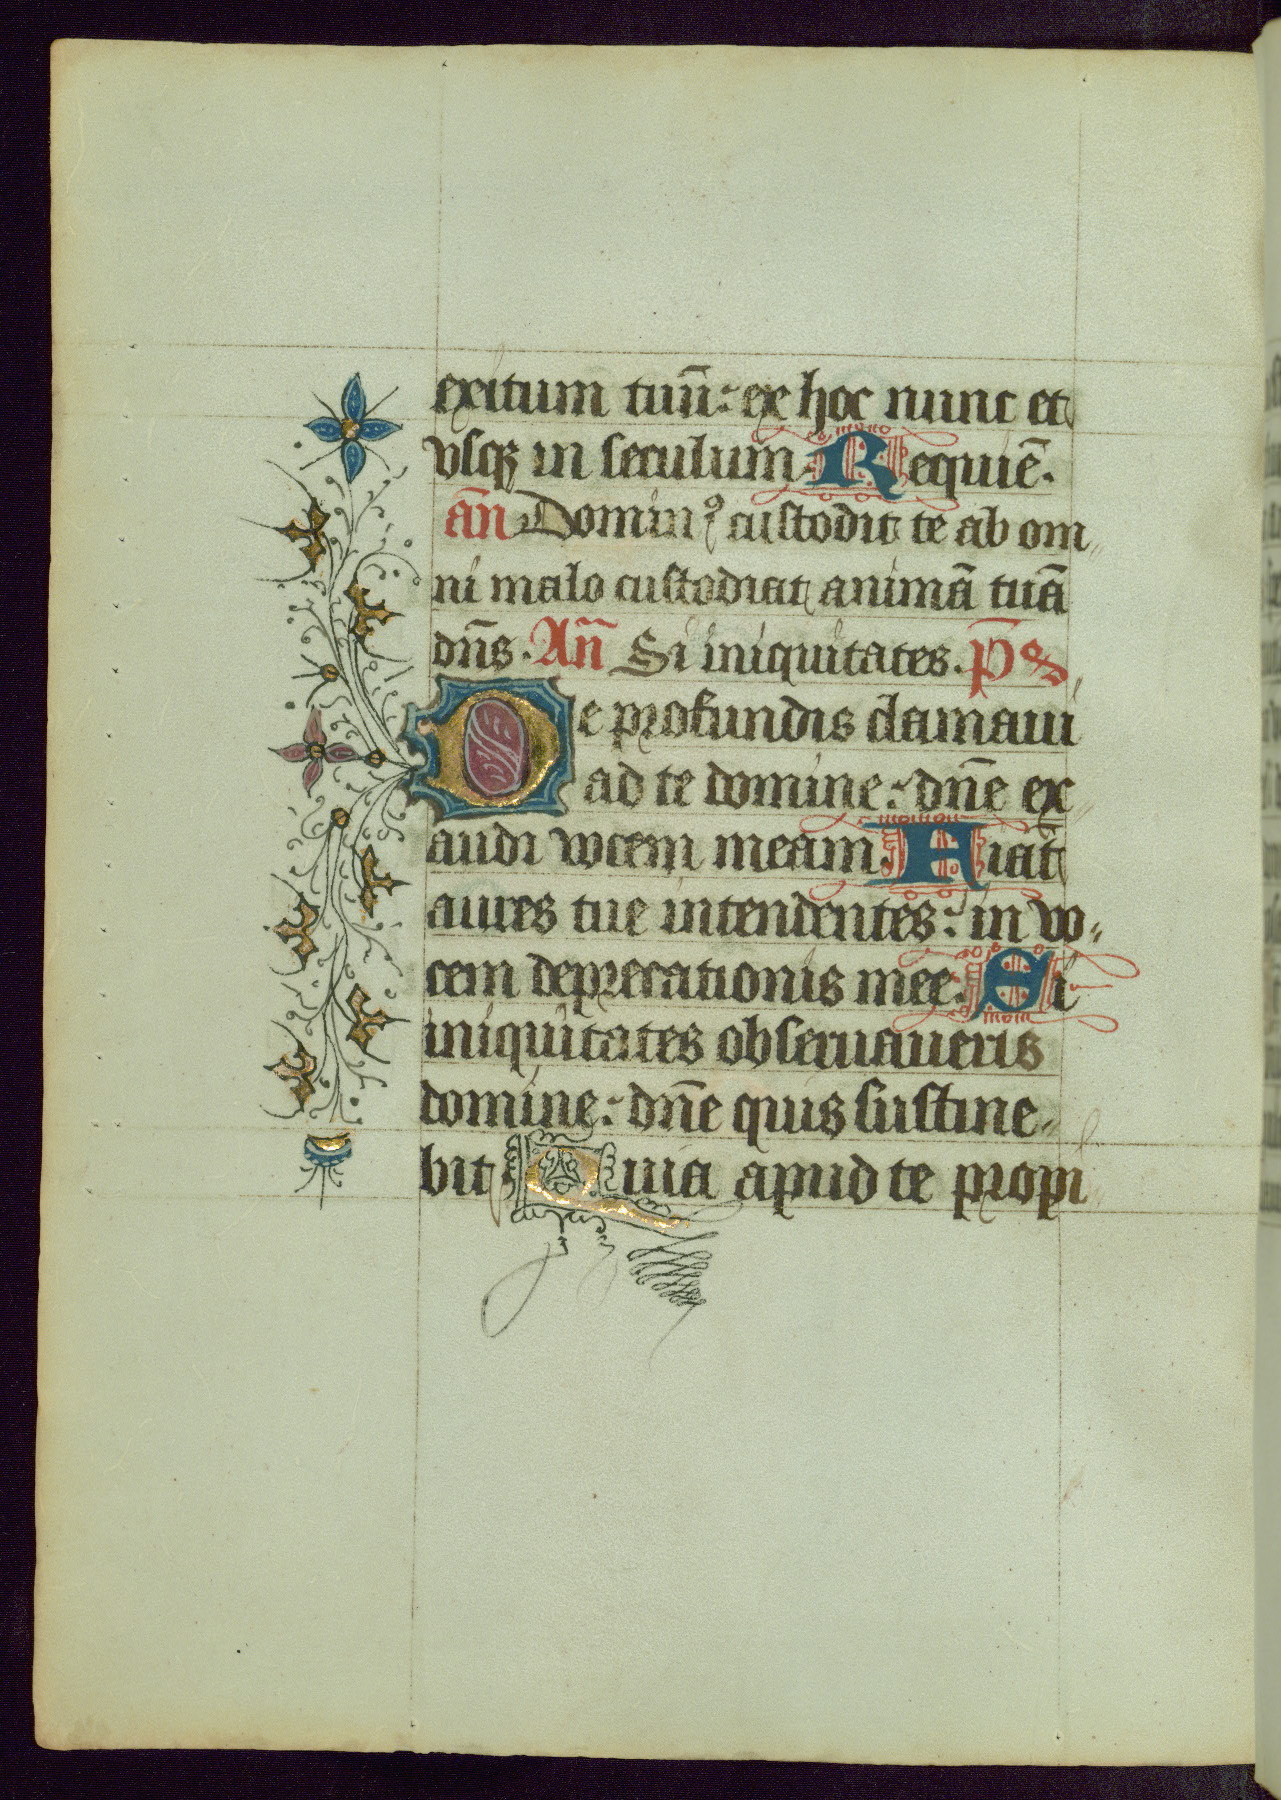 exitum tuū: ex hoc nunc et
vsqꝫ in seculum. Requiē.
añ Dominꝰ custodit te ab om
ni malo custodiat animā tuā
dñs. Añ Si iniquitates. p̄s
De profundis clamaui
ad te domine: dñe ex
audi vocem meam. Fiāt
aures tue intendentes: in vo
cem deprecationis mee. Si
iniquitates obseruaueris
domine: dñe quis sustine
bit Quia apud te propi